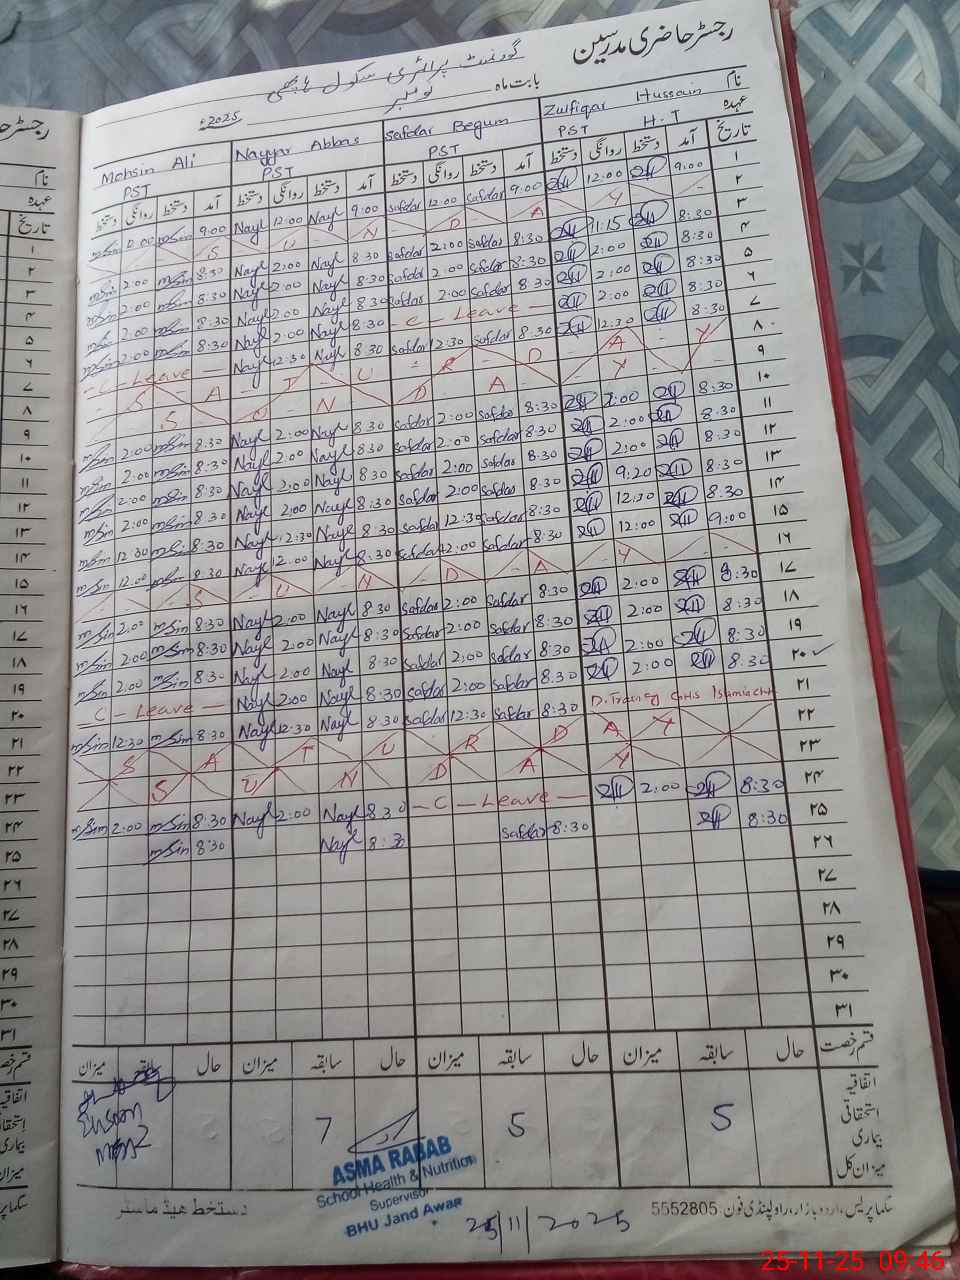 رجسٹر حاضری مدرسین
گورنمنٹ پرائمری سکول
بابت ماہ نومبر 2025ء
نام
Mohsin Ali Nayyar Abbas Safdar Begum Zulfiqar Hussain
عہدہ
PST PST PST PST H.T
دستخط روانگی دستخط آمد دستخط روانگی دستخط آمد دستخط روانگی دستخط آمد دستخط روانگی دستخط آمد تاریخ
mSin 12:00 mSin 9:00 Nayyl 12:00 Nayl 9:00 Safdar 12:00 Safdar 9:00 12:00 9:00 ۱
S U N D A Y ۲
mSin 2:00 mSin 8:30 Nayl 2:00 Nayl 8:30 Safdar 2:00 Safdar 8:30 11:15 8:30 ۳
mSin 2:00 mSin 8:30 Nayl 2:00 Nayl 8:30 Safdar 2:00 Safdar 8:30 2:00 8:30 ۴
mSin 2:00 mSin 8:30 Nayl 2:00 Nayl 8:30 Safdar 2:00 Safdar 8:30 2:00 8:30 ۵
mSin 2:00 mSin 8:30 Nayl 2:00 Nayl 8:30 - C - Leave - 2:00 8:30 ۶
- C - Leave - Nayl 12:30 Nayl 8:30 Safdar 12:30 Safdar 8:30 12:30 8:30 ۷
S A T U R D A Y ۸
S U N D A Y ۹
mSin 2:00 mSin 8:30 Nayl 2:00 Nayl 8:30 Safdar 2:00 Safdar 8:30 2:00 8:30 ۱۰
mSin 2:00 mSin 8:30 Nayl 2:00 Nayl 8:30 Safdar 2:00 Safdar 8:30 2:00 8:30 ۱۱
mSin 2:00 mSin 8:30 Nayl 2:00 Nayl 8:30 Safdar 2:00 Safdar 8:30 2:00 8:30 ۱۲
mSin 2:00 mSin 8:30 Nayl 2:00 Nayl 8:30 Safdar 2:00 Safdar 8:30 9:20 8:30 ۱۳
mSin 12:30 mSin 8:30 Nayl 12:30 Nayl 8:30 Safdar 12:30 Safdar 8:30 12:30 8:30 ۱۴
mSin 12:00 mSin 8:30 Nayl 12:00 Nayl 8:30 Safdar 12:00 Safdar 8:30 12:00 9:00 ۱۵
S U N D A Y ۱۶
mSin 2:00 mSin 8:30 Nayl 2:00 Nayl 8:30 Safdar 2:00 Safdar 8:30 2:00 8:30 ۱۷
mSin 2:00 mSin 8:30 Nayl 2:00 Nayl 8:30 Safdar 2:00 Safdar 8:30 2:00 8:30 ۱۸
mSin 2:00 mSin 8:30 Nayl 2:00 Nayl 8:30 Safdar 2:00 Safdar 8:30 2:00 8:30 ۱۹
- C - Leave - Nayl 2:00 Nayl 8:30 Safdar 2:00 Safdar 8:30 2:00 8:30 ۲۰
mSin 12:30 mSin 8:30 Nayl 12:30 Nayl 8:30 Safdar 12:30 Safdar 8:30 D. Training GHS Islamia ۲۱
S A T U R D A Y ۲۲
S U N D A Y ۲۳
mSin 2:00 mSin 8:30 Nayl 2:00 Nayl 8:30 - C - Leave - 2:00 8:30 ۲۴
mSin 8:30 Nayl 8:30 Safdar 8:30 8:30 ۲۵
۲۶
۲۷
۲۸
۲۹
۳۰
۳۱
میزان سابقہ حال میزان سابقہ حال میزان سابقہ حال میزان سابقہ حال قسم رخصت
اتفاقیہ
استحقاقی
7 5 5
بیماری
میزان کل
ASMA RABAB
School Health & Nutrition
Supervisor
BHU Jand Awan
25/11/2025
دستخط ہیڈ ماسٹر
سکما پریس، اردو بازار، راولپنڈی فون: 5552805
رجسٹر حا
نام
عہدہ
تاریخ
۱
۲
۳
۴
۵
۶
۷
۸
۹
۱۰
۱۱
۱۲
۱۳
۱۴
۱۵
۱۶
۱۷
۱۸
۱۹
۲۰
۲۱
۲۲
۲۳
۲۴
۲۵
۲۶
۲۷
۲۸
۲۹
۳۰
۳۱
قسم رخص
اتفاقیہ
25-11-25 09:46